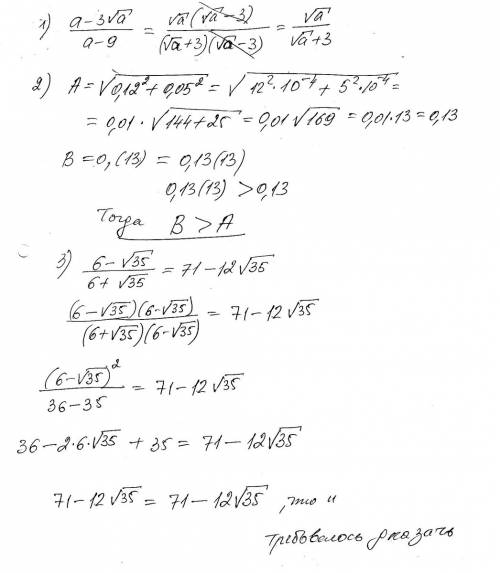 1) (a-3√a)/(a-9) = (√a(√a-3))/((√a+3)(√a-3)) = √a/(√a+3)
2) A = √(0,12² + 0,05²) = √(12²·10⁻⁴ + 5²·10⁻⁴) =
= 0,01 · √(144+25) = 0,01√169 = 0,01·13 = 0,13
B = 0,(13) = 0,13(13)
0,13(13) > 0,13
Тогда B > A
3) (6-√35)/(6+√35) = 71-12√35
((6-√35)(6-√35))/((6+√35)(6-√35)) = 71-12√35
(6-√35)²/(36-35) = 71-12√35
36-2·6·√35 + 35 = 71-12√35
71-12√35 = 71-12√35, что и
требовалось доказать